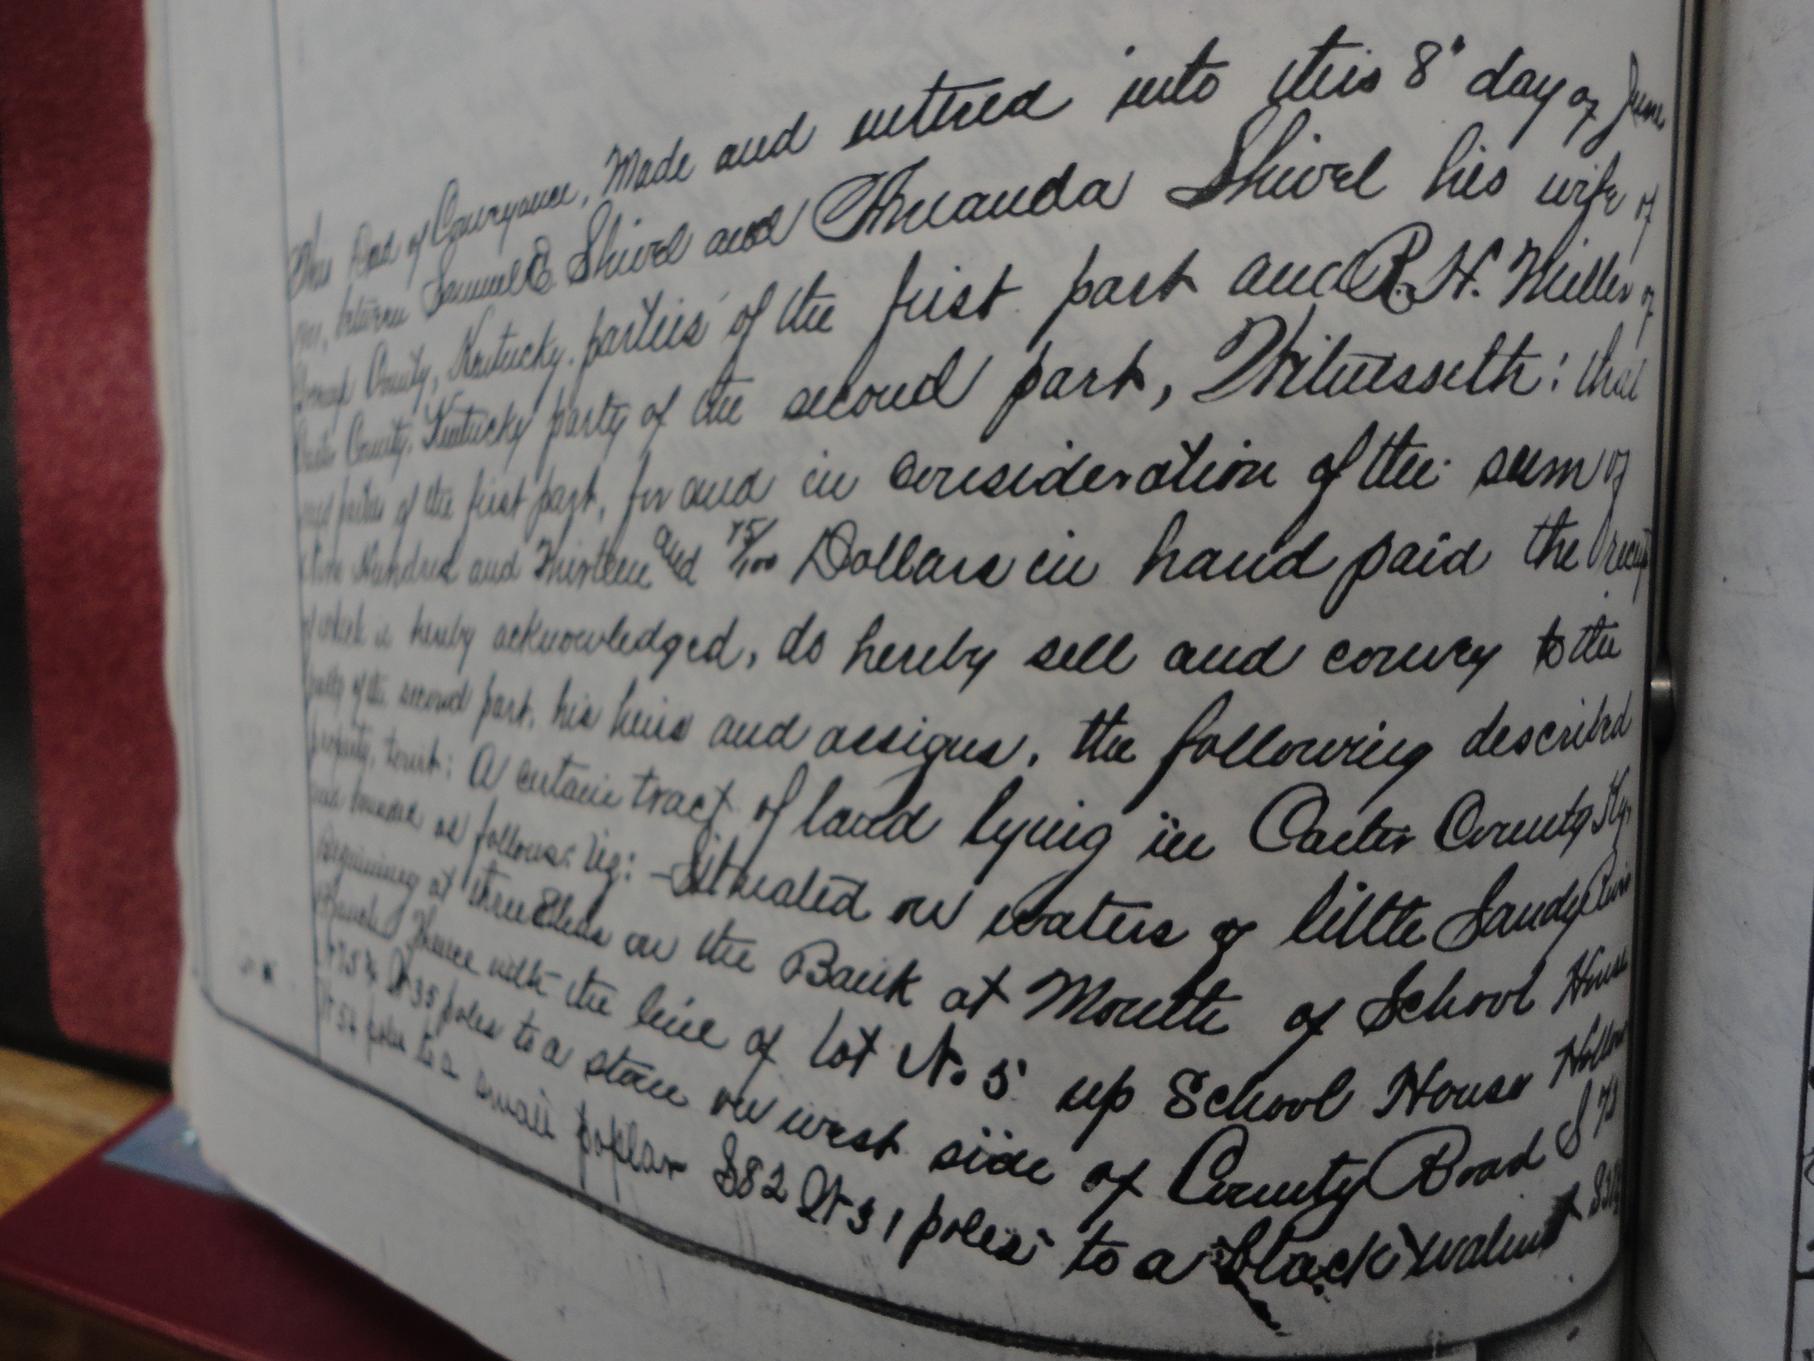 This Deed of Conveyance, Made and entered into this 8" day of June
between Samuel C Shivel and Amanda Shivel his wife of
County, Kentucky. parties of the first part and R. H. Miller of
Carter County, Kentucky party of the second part, Witnesseth: that
said parties of the first part, for and in consideration of the sum of
Hundred and Thirteen and 75/100 Dollars in hand paid the receipt
of which is hereby acknowledged, do hereby sell and convey to the
party of the second part, his heirs and assigns, the following described
property, towit: A certain tract of land lying in Carter County Ky,
and bounded as follows: Viz: - Situated on waters of little Sandy
Beginning at three Elms on the Bank at Mouth of School House
Branch Thence with the line of lot No. 5 up School House Hollow
35 poles to a stone on west side of County Road S 73
poles to a small poplar S82 W 31 poles to a black walnut